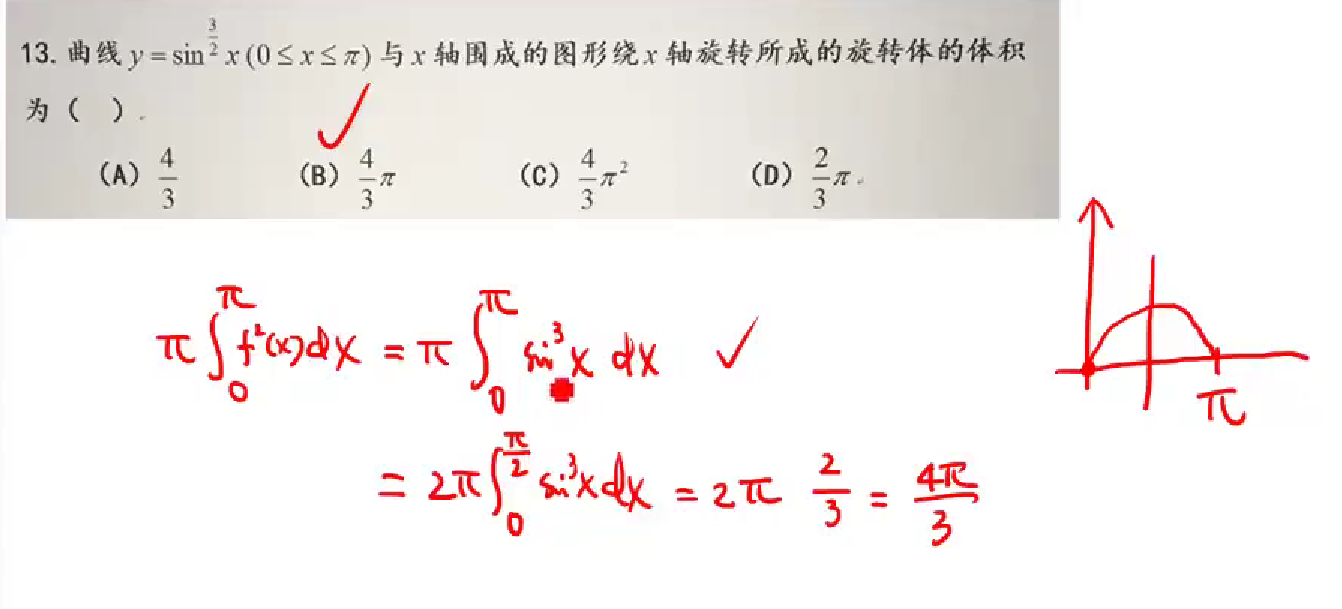 13. 曲线 y = sin^{3/2} x (0 ≤ x ≤ π) 与 x 轴围成的图形绕 x 轴旋转所成的旋转体的体积
为（ ）.
(A) 4/3 (B) 4/3 π (C) 4/3 π² (D) 2/3 π.
π∫₀^π f²(x)dx = π∫₀^π sin³x dx
= 2π∫₀^{π/2} sin³x dx = 2π 2/3 = 4π/3
π